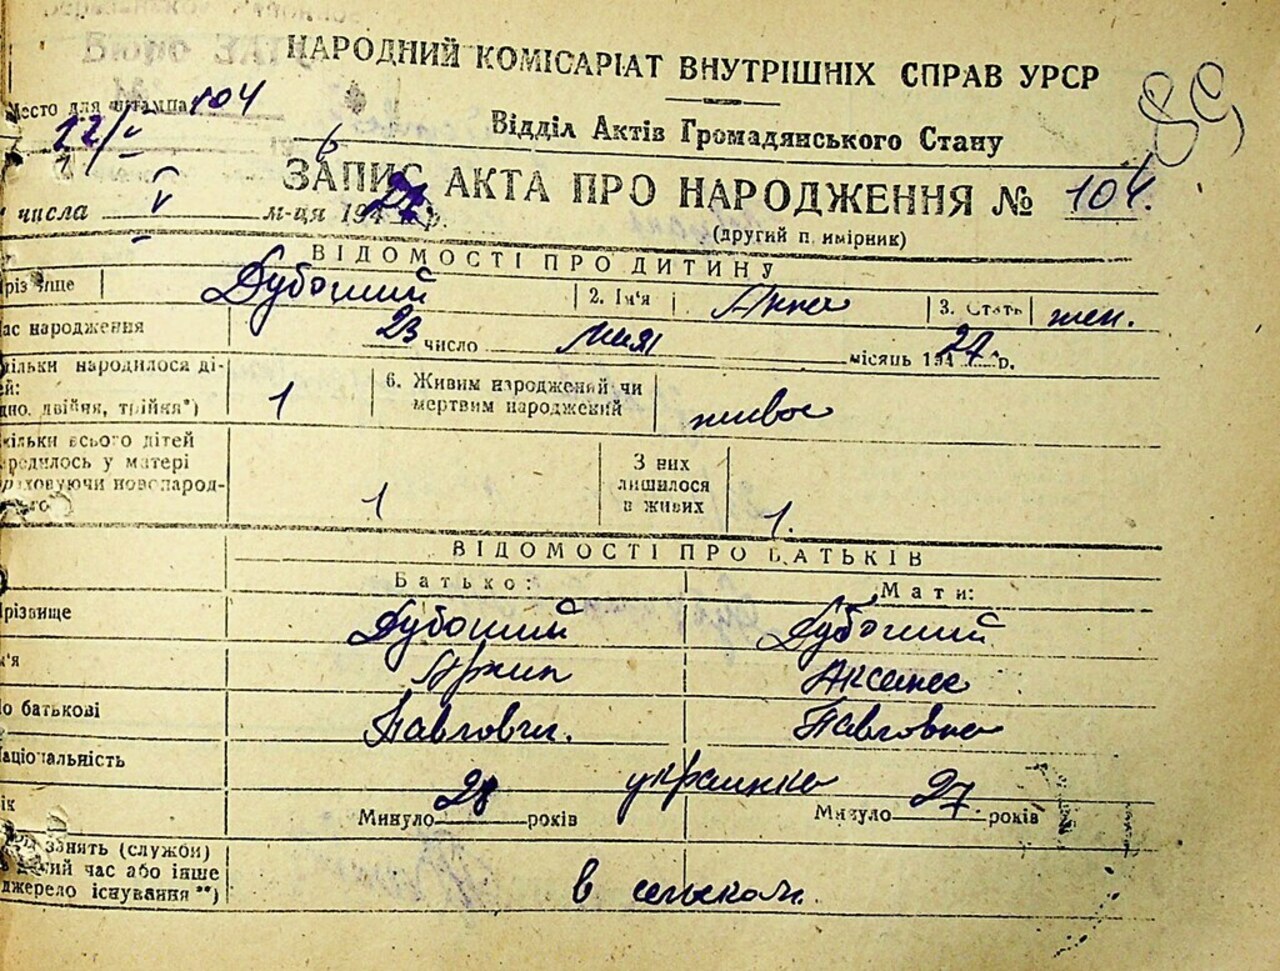 НАРОДНИЙ КОМІСАРІАТ ВНУТРІШНІХ СПРАВ УРСР
Место для штампа 104
89
Відділ Актів Громадянського Стану
12/V
ЗАПИС АКТА ПРО НАРОДЖЕННЯ № 104.
числа V м-ця 194 р.
(другий п. имірник)
ВІДОМОСТІ ПРО ДИТИНУ
різвище Дубоший 2. Ім'я Анна 3. Стать жен.
ас народження 23 число мая місяць 1927 р.
кільки народилося ді-
ей:
дно, двійня, трійня*) 1 6. Живим народжений чи мертвим народжений живое
кільки всього дітей
родилось у матері
раховуючи новонарод-
ного 1 З них лишилося в живих 1.
ВІДОМОСТІ ПРО БАТЬКІВ
Батько: Мати:
різвище Дубоший Дубоший
м'я Архип Аксенья
о батькові Павлович. Павловна
аціональність украинка
ік Минуло 28 років Минуло 27 років
занять (служби)
й час або інше
джерело існування **) в сельхоз.